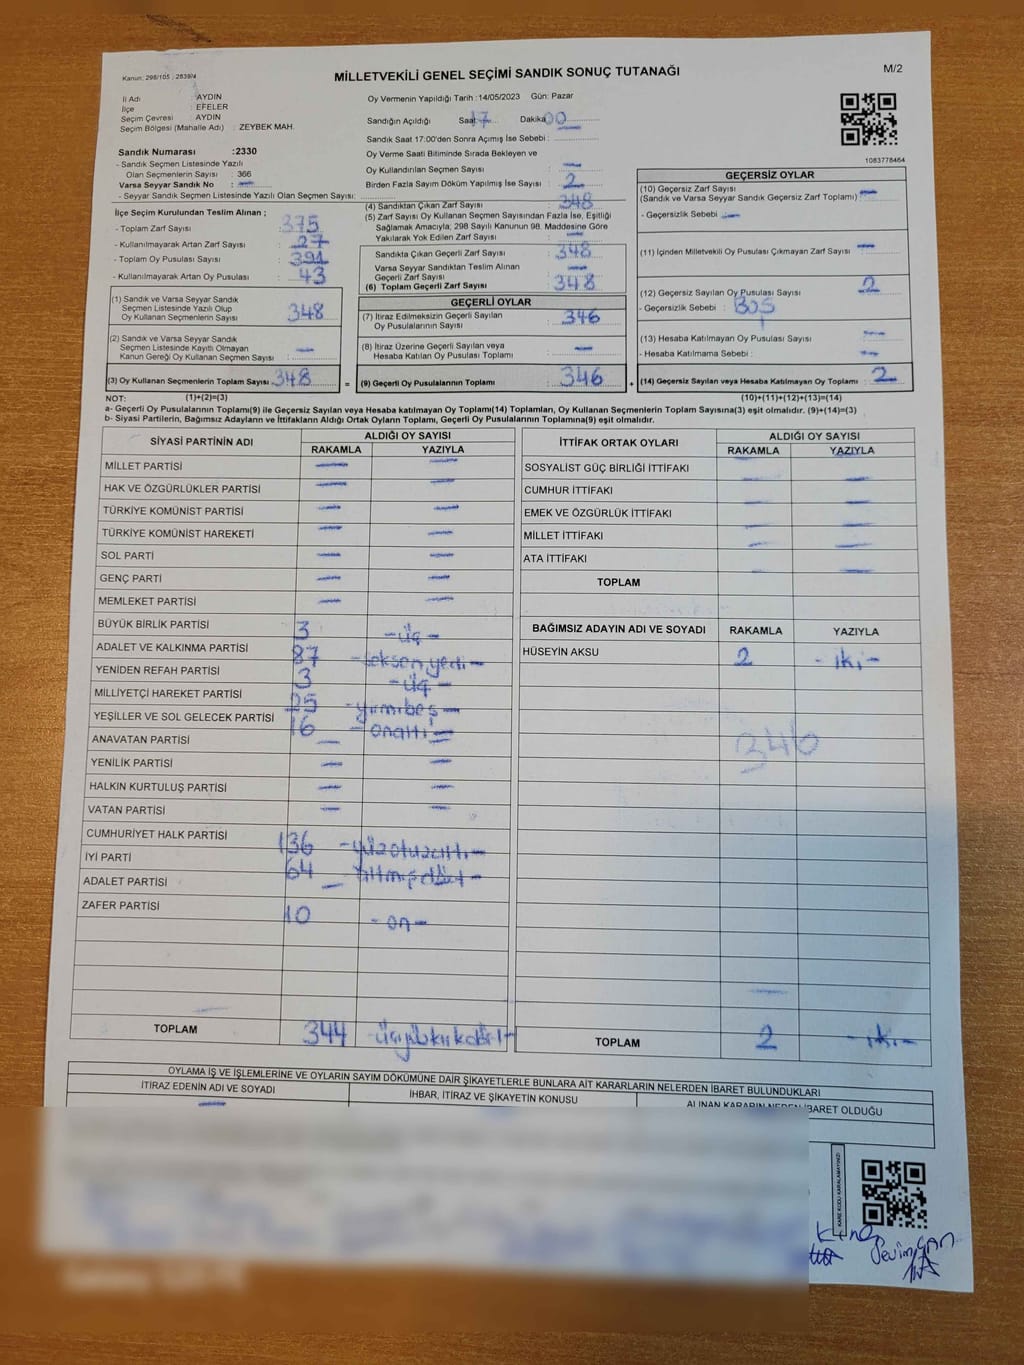 Kanun: 298/105 , 2839/4
MİLLETVEKİLİ GENEL SEÇİMİ SANDIK SONUÇ TUTANAĞI
M/2
İl Adı : AYDIN
İlçe : EFELER
Seçim Çevresi : AYDIN
Seçim Bölgesi (Mahalle Adı) : ZEYBEK MAH.
Sandık Numarası :2330
- Sandık Seçmen Listesinde Yazılı
Olan Seçmenlerin Sayısı : 366
Varsa Seyyar Sandık No : —
- Seyyar Sandık Seçmen Listesinde Yazılı Olan Seçmen Sayısı:
İlçe Seçim Kurulundan Teslim Alınan ;
- Toplam Zarf Sayısı : 375
- Kullanılmayarak Artan Zarf Sayısı : 27
- Toplam Oy Pusulası Sayısı : 391
- Kullanılmayarak Artan Oy Pusulası : 43
(1) Sandık ve Varsa Seyyar Sandık
Seçmen Listesinde Yazılı Olup
Oy Kullanan Seçmenlerin Sayısı : 348
(2) Sandık ve Varsa Seyyar Sandık
Seçmen Listesinde Kayıtlı Olmayan
Kanun Gereği Oy Kullanan Seçmen Sayısı : —
(3) Oy Kullanan Seçmenlerin Toplam Sayısı : 348
Oy Vermenin Yapıldığı Tarih :14/05/2023 Gün: Pazar
Sandığın Açıldığı Saat 17 Dakika 00
Sandık Saat 17:00'den Sonra Açımış İse Sebebi :
Oy Verme Saati Bitiminde Sırada Bekleyen ve
Oy Kullandırılan Seçmen Sayısı : —
Birden Fazla Sayım Döküm Yapılmış İse Sayısı : 2
(4) Sandıktan Çıkan Zarf Sayısı : 348
(5) Zarf Sayısı Oy Kullanan Seçmen Sayısından Fazla İse, Eşitliği
Sağlamak Amacıyla, 298 Sayılı Kanunun 98. Maddesine Göre
Yakılarak Yok Edilen Zarf Sayısı : —
Sandıkta Çıkan Geçerli Zarf Sayısı : 348
Varsa Seyyar Sandıktan Teslim Alınan
Geçerli Zarf Sayısı : —
(6) Toplam Geçerli Zarf Sayısı : 348
GEÇERLİ OYLAR
(7) İtiraz Edilmeksizin Geçerli Sayılan
Oy Pusulalarının Sayısı : 346
(8) İtiraz Üzerine Geçerli Sayılan veya
Hesaba Katılan Oy Pusulası Toplamı : —
= (9) Geçerli Oy Pusulalarının Toplamı : 346 +
1083778464
GEÇERSİZ OYLAR
(10) Geçersiz Zarf Sayısı
(Sandık ve Varsa Seyyar Sandık Geçersiz Zarf Toplamı) : —
- Geçersizlik Sebebi : —
(11) İçinden Milletvekili Oy Pusulası Çıkmayan Zarf Sayısı : —
(12) Geçersiz Sayılan Oy Pusulası Sayısı : 2
- Geçersizlik Sebebi : BOŞ
(13) Hesaba Katılmayan Oy Pusulası Sayısı : —
- Hesaba Katılmama Sebebi : —
(14) Geçersiz Sayılan veya Hesaba Katılmayan Oy Toplamı : 2
NOT: (1)+(2)=(3) (10)+(11)+(12)+(13)=(14)
a- Geçerli Oy Pusulalarının Toplamı(9) ile Geçersiz Sayılan veya Hesaba katılmayan Oy Toplamı(14) Toplamları, Oy Kullanan Seçmenlerin Toplam Sayısına(3) eşit olmalıdır. (9)+(14)=(3)
b- Siyasi Partilerin, Bağımsız Adayların ve İttifakların Aldığı Ortak Oyların Toplamı, Geçerli Oy Pusulalarının Toplamına(9) eşit olmalıdır.
SİYASİ PARTİNİN ADI ALDIĞI OY SAYISI
RAKAMLA YAZIYLA
MİLLET PARTİSİ — —
HAK VE ÖZGÜRLÜKLER PARTİSİ — —
TÜRKİYE KOMÜNİST PARTİSİ — —
TÜRKİYE KOMÜNİST HAREKETİ — —
SOL PARTİ — —
GENÇ PARTİ — —
MEMLEKET PARTİSİ — —
BÜYÜK BİRLİK PARTİSİ 3 -üç-
ADALET VE KALKINMA PARTİSİ 87 -seksenyedi-
YENİDEN REFAH PARTİSİ 3 -üç-
MİLLİYETÇİ HAREKET PARTİSİ 25 -yirmibeş-
YEŞİLLER VE SOL GELECEK PARTİSİ 16 -onaltı-
ANAVATAN PARTİSİ — —
YENİLİK PARTİSİ — —
HALKIN KURTULUŞ PARTİSİ — —
VATAN PARTİSİ — —
CUMHURİYET HALK PARTİSİ 136 -yüzotuzaltı-
İYİ PARTİ 64 -altmışdört-
ADALET PARTİSİ —
ZAFER PARTİSİ 10 -on-
TOPLAM 344
İTTİFAK ORTAK OYLARI ALDIĞI OY SAYISI
RAKAMLA YAZIYLA
SOSYALİST GÜÇ BİRLİĞİ İTTİFAKI — —
CUMHUR İTTİFAKI — —
EMEK VE ÖZGÜRLÜK İTTİFAKI — —
MİLLET İTTİFAKI — —
ATA İTTİFAKI — —
TOPLAM
BAĞIMSIZ ADAYIN ADI VE SOYADI RAKAMLA YAZIYLA
HÜSEYİN AKSU 2 -iki-
346
TOPLAM 2 -iki-
OYLAMA İŞ VE İŞLEMLERİNE VE OYLARIN SAYIM DÖKÜMÜNE DAİR ŞİKAYETLERLE BUNLARA AİT KARARLARIN NELERDEN İBARET BULUNDUKLARI
İTİRAZ EDENİN ADI VE SOYADI İHBAR, İTİRAZ VE ŞİKAYETİN KONUSU ALINAN KARARIN NEDEN İBARET OLDUĞU